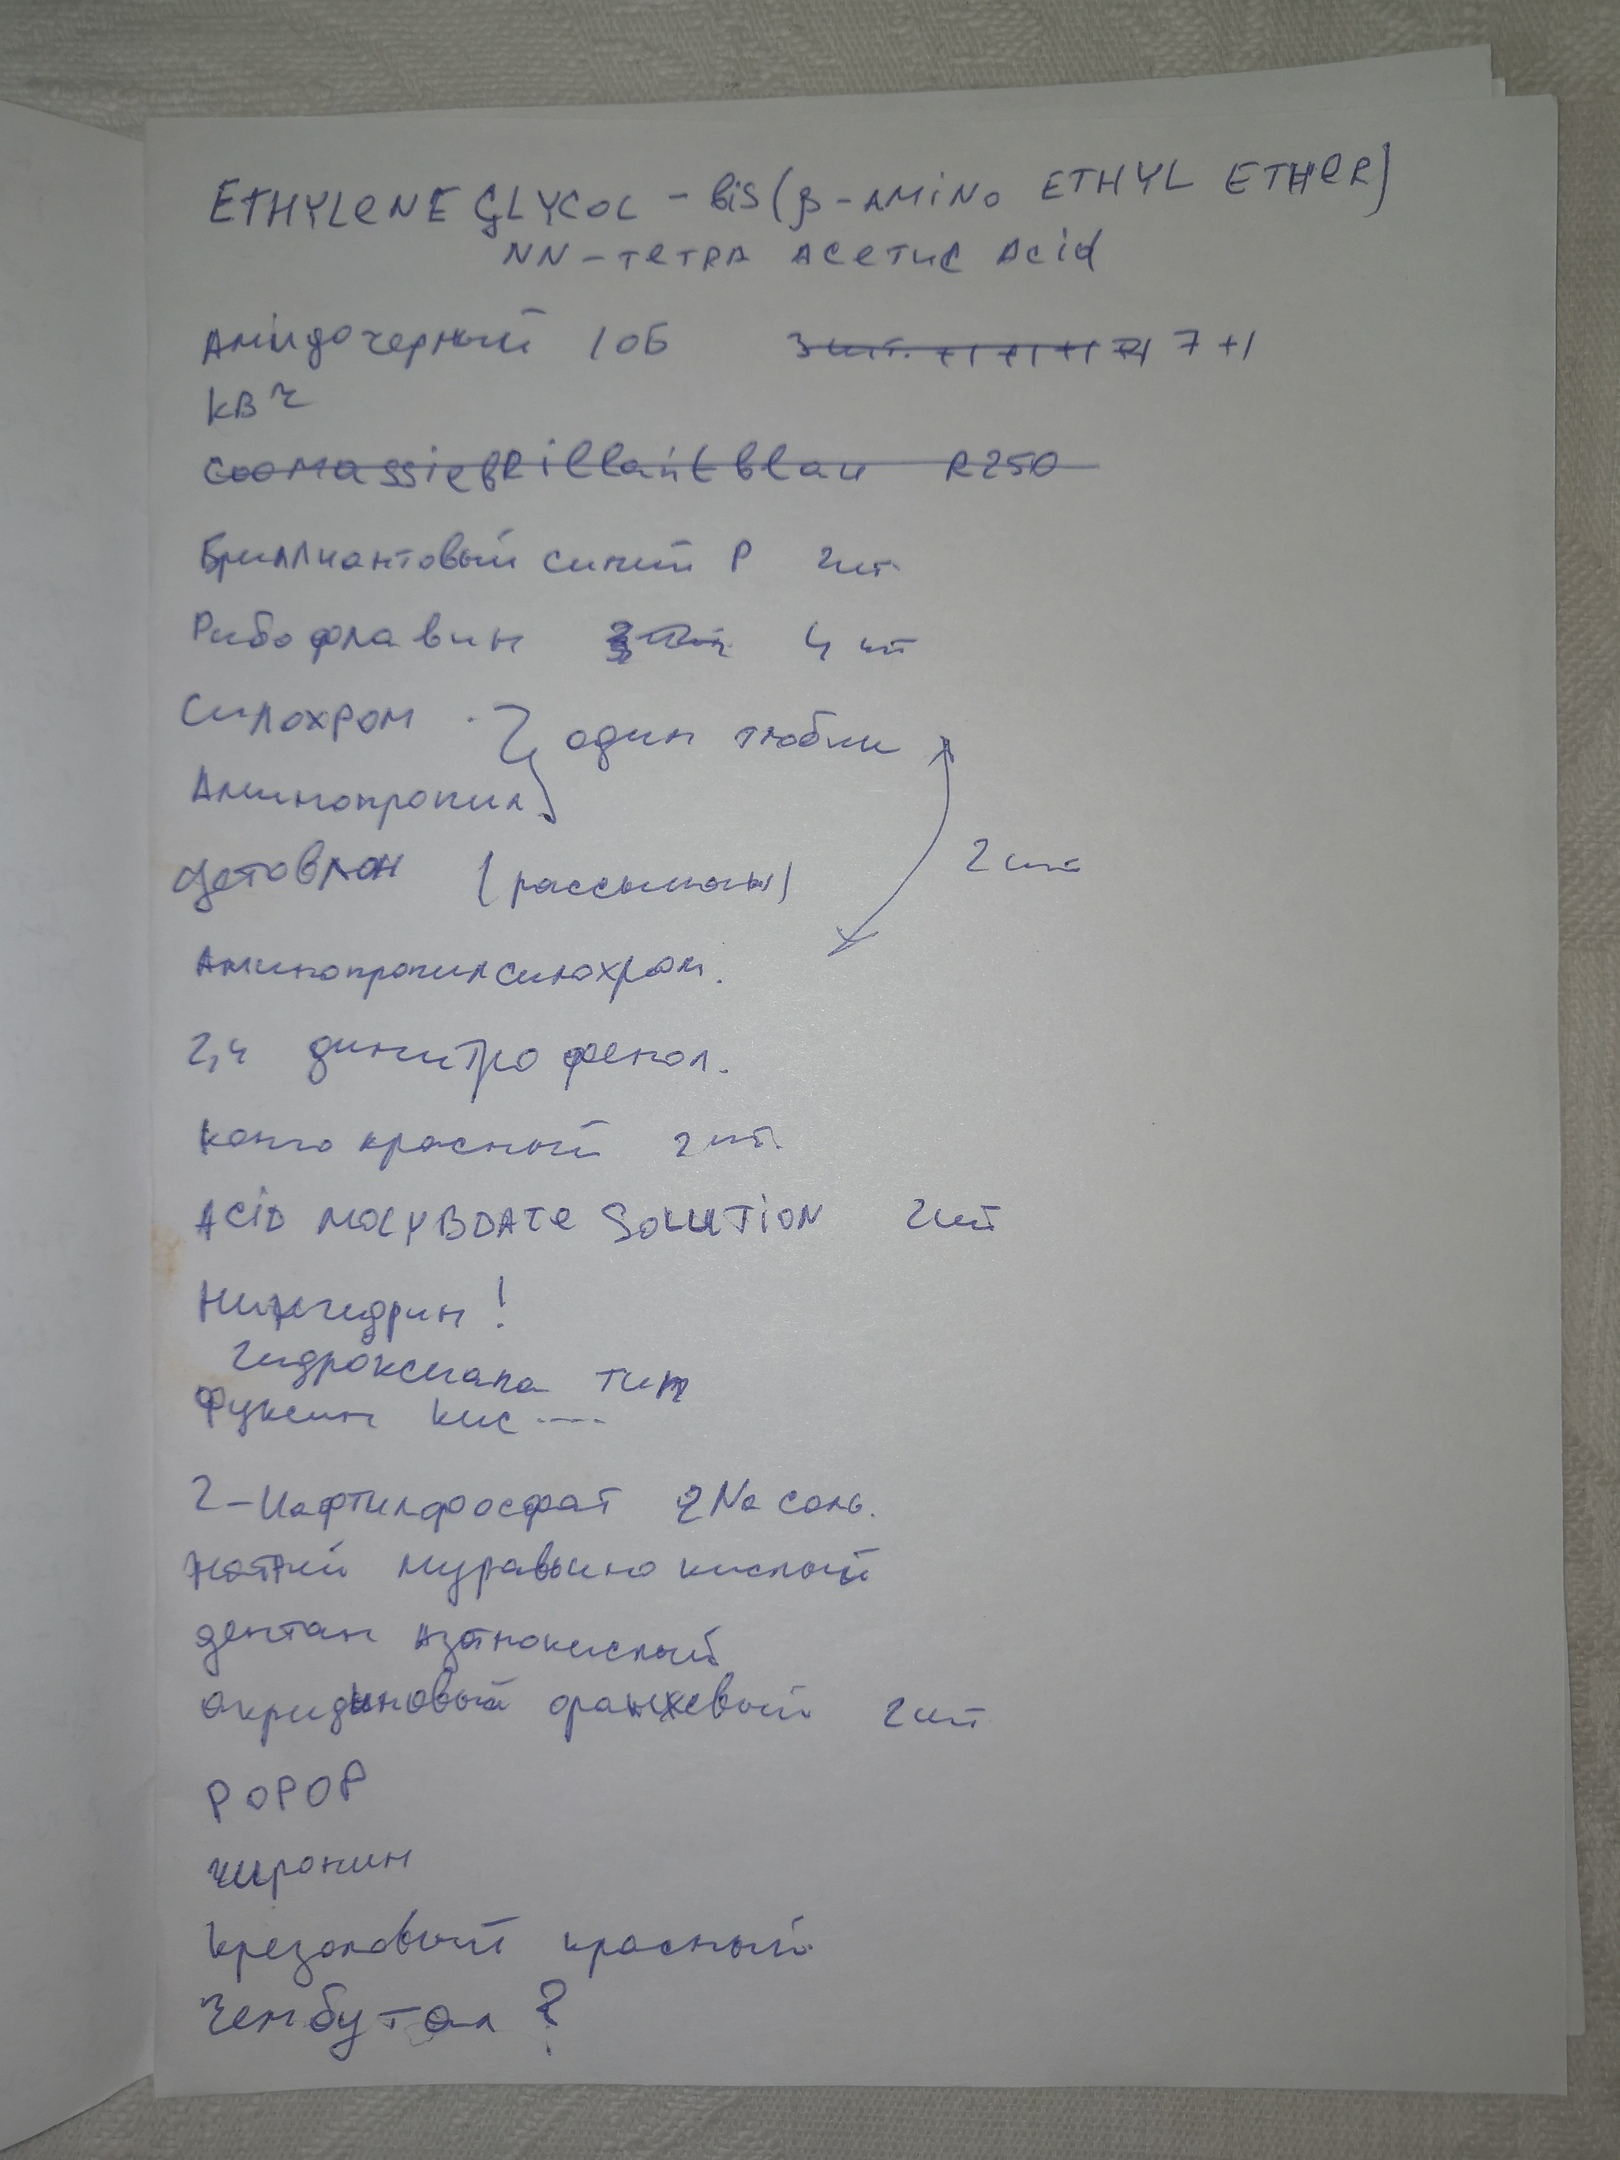 ETHYLENE GLYCOL - bis (β - AMINO ETHYL ETHER)
NN - тетра ACETIC Acid
Амидочерный 10Б 3 шт. +1 +1 +1 +1 7 +1
КВЧ
Coomassiebrillantblau R250
Бриллиантовый синий Р 2шт.
Рибофлавин 4 шт
Силохром } один тюбик
Аминопропил
Цетавлон (рассыпаны)
2 шт
Аминопропилсилохром.
2,4 динитрофенол.
Конго красный 2 шт.
ACID MOLYBDATE SOLUTION 2шт
Нингидрин!
Гидроксиапа тит
Фуксин кис ----
2-Нафтилфосфат 2Na соль.
Натрий муравьино кислый
Лентан Азотнокислый
Акридиновый оранжевый 2 шт
POPOP
Чиронин
Крезоловый красный
Чембутал ?